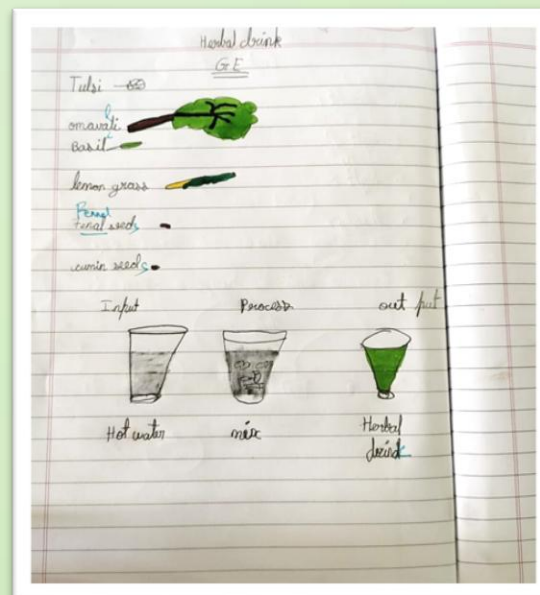 Herbal drink
GE
Tulsi
omavati
Basil
lemon grass
Fennal
fenal seeds
cumin seeds
Input Process out put
Hot water mix Herbal
drink